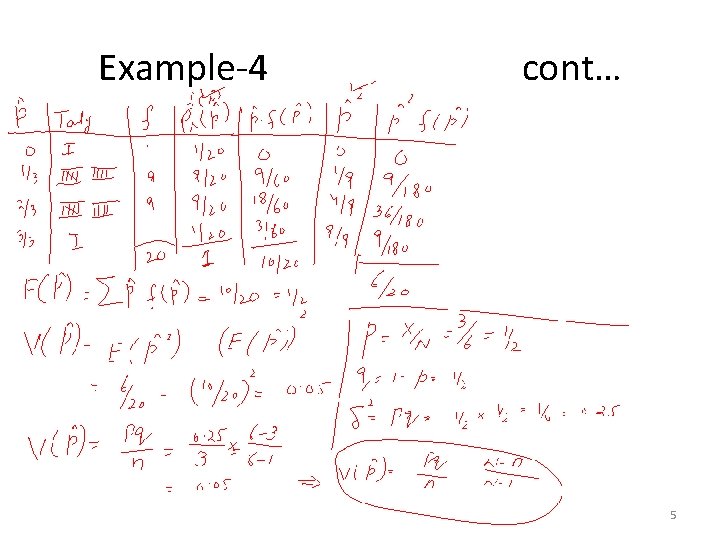 Example-4 cont...
p̂ Tally f p̂ f(p̂) p̂² p̂² f(p̂)
0 I 1/20 0 0 0
1/3 IIII IIII 9 9/20 9/60 1/9 9/180
2/3 IIII IIII 9 9/20 18/60 4/9 36/180
3/3 I 1/20 3/60 9/9 9/180
20 1 10/20 6/20
E(p̂) = Σ p̂ f(p̂) = 10/20 = 1/2
V(p̂) = E(p̂²) (E(p̂))²
= 6/20 - (10/20)² = 0.05
V(p̂) = pq/n = 0.25/3 × 6-3/6-1
= 0.05
p = X/N = 3/6 = 1/2
q = 1 - p = 1/2
δ² = pq = 1/2 × 1/2
⇒ V(p̂) = pq/n
5